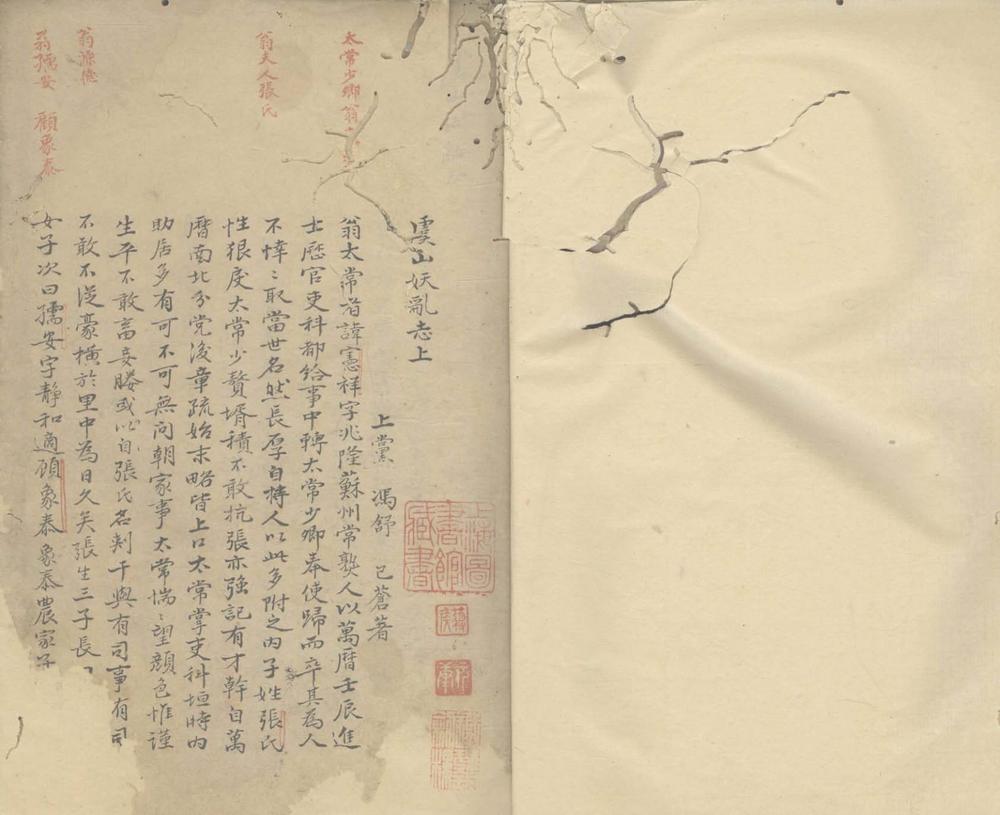 虞山妖亂志上
上黨 馮舒 已蒼著
翁太常者諱憲祥字兆隆蘇州常熟人以萬曆壬辰進
士歷官吏科都給事中轉太常少卿奉使歸而卒其為人
不悻〻取當世名然長厚自持人以此多附之內子姓張氏
性狠戾太常少贅壻積不敢抗張亦強記有才幹自萬
曆南北分党後章疏始末略皆上口太常掌吏科垣時內
助居多有可不可無問朝家事太常惴〻望顏色惟謹
生平不敢畜妾媵或以自張氏名刺干與有司事有司
不敢不從豪橫於里中為日久矣張生三子長
女子次曰孺安字靜和適顧象泰象泰農家子
太常少卿翁
翁夫人張氏
翁源德
翁孺安 顧象泰
上海圖書館藏書